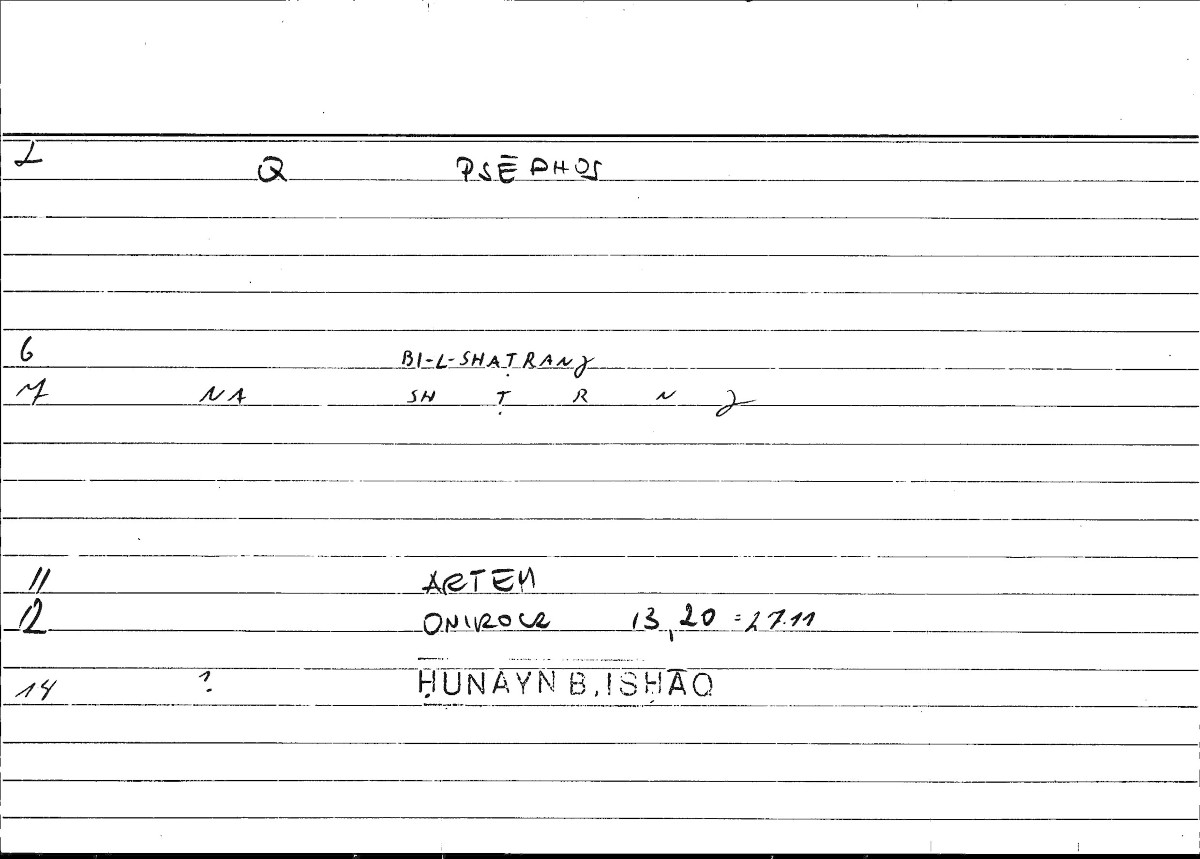 L Q PSĒPHOS
6 BI-L-SHAṬRANJ
7 NA SH Ṭ R N J
11 ARTEM
12 ONIROCR 13,20 = 27.11
14 ? ḤUNAYN B. ISḤĀQ